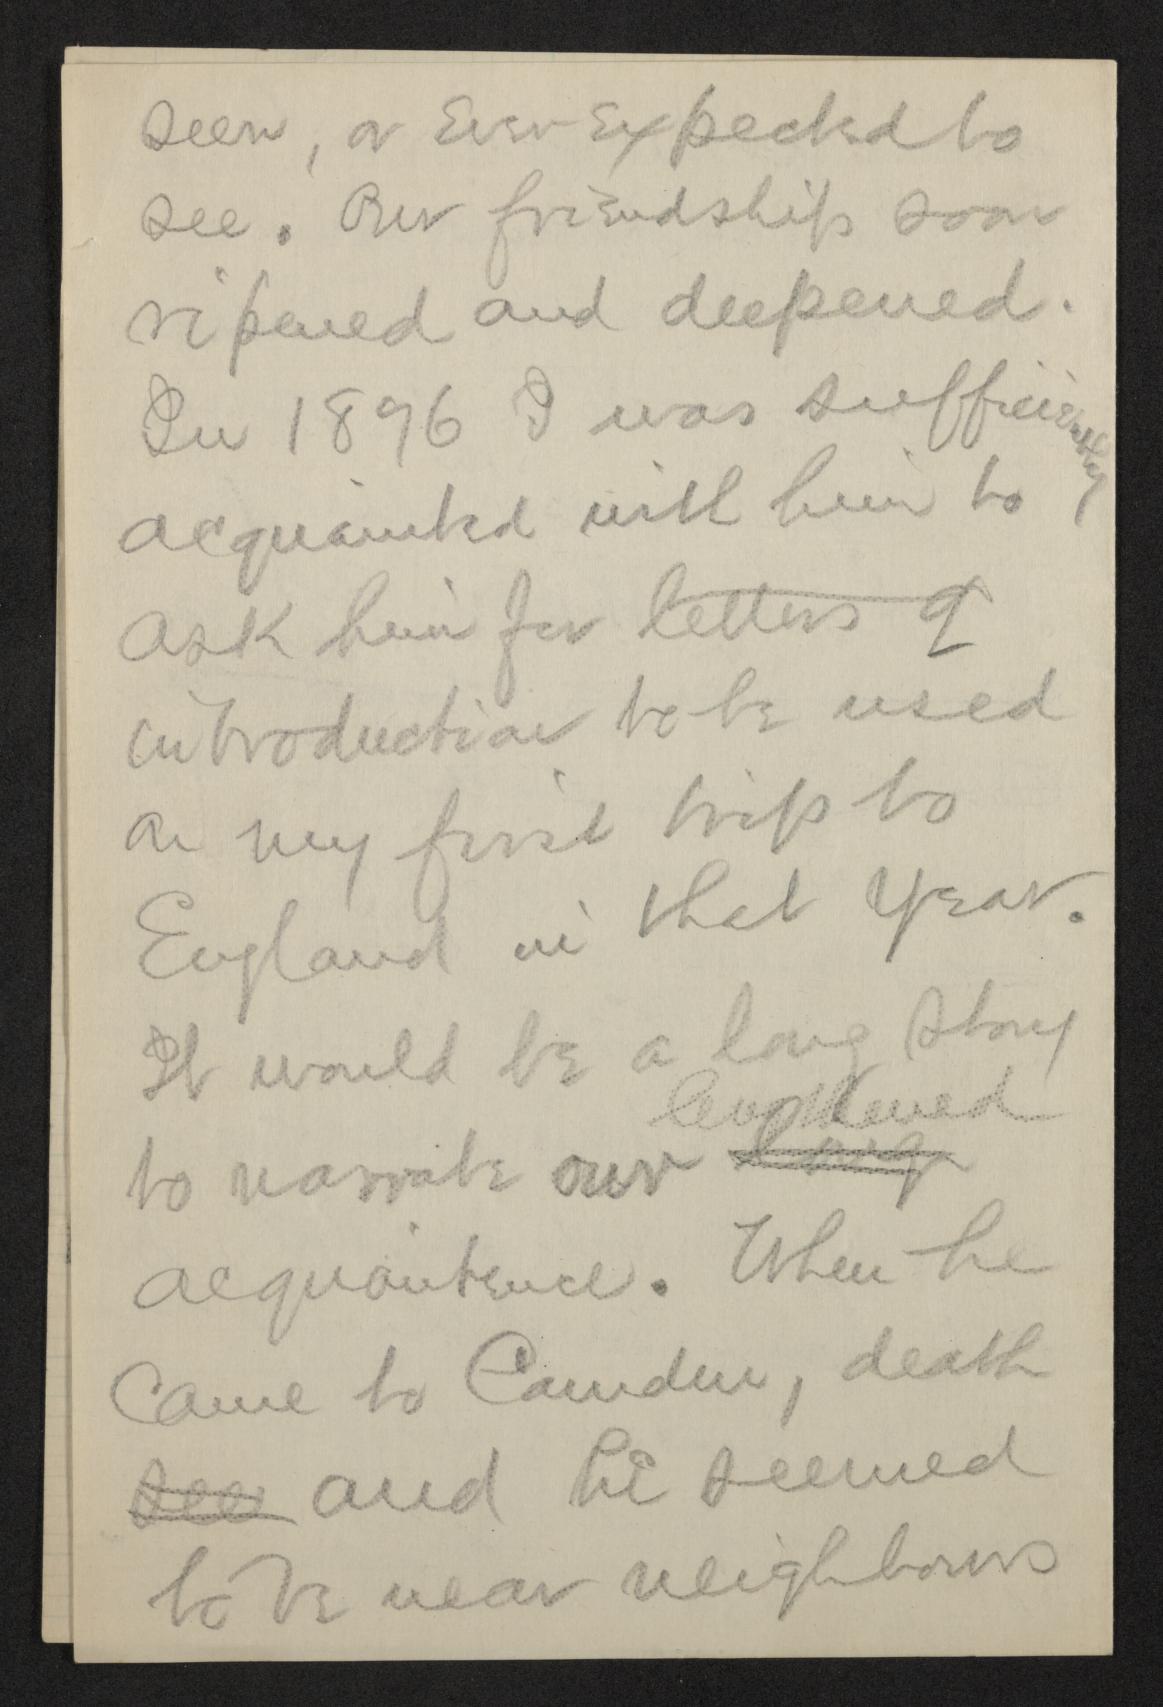 seen, or ever expected to
see. Our friendship soon
ripened and deepened.
In 1896 I was sufficiently
acquainted with him to
ask him for letters of
introduction to be used
on my first trip to
England in that year.
It would be a long story
lengthened
to narrate our long
acquaintence. When he
came to Camden, death
see and he seemed
to be near neighbours